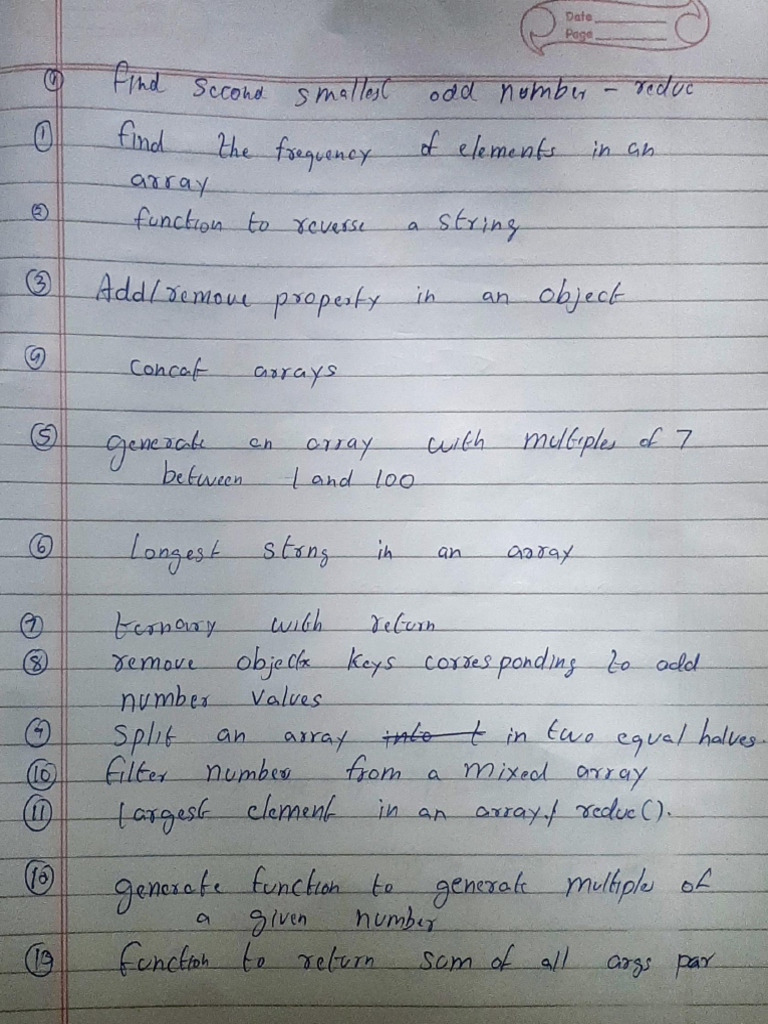 Date
Page
0 find second smallest odd number - reduc
1 find the frequency of elements in an
array
2 function to reverse a string
3 Add/remove property in an object
4 concat arrays
5 generate an array with multiples of 7
between 1 and 100
6 longest strng in an array
7 ternary with return
8 remove object keys corresponding to odd
number values
9 split an array into t in two equal halves.
10 filter numbers from a mixed array
11 largest element in an array / reduc().
18 generate function to generate multiple of
a given number
19 function to return sum of all args par